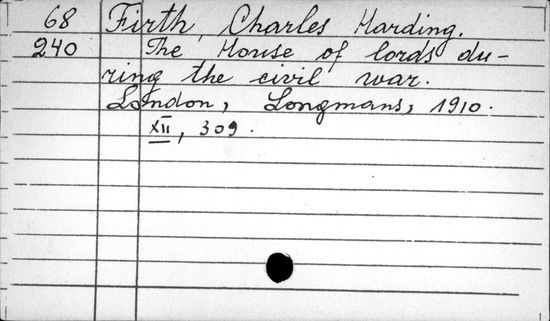 68 Firth, Charles Harding.
240 The House of lords du-
ring the civil war.
London, Longmans, 1910.
XII, 309.